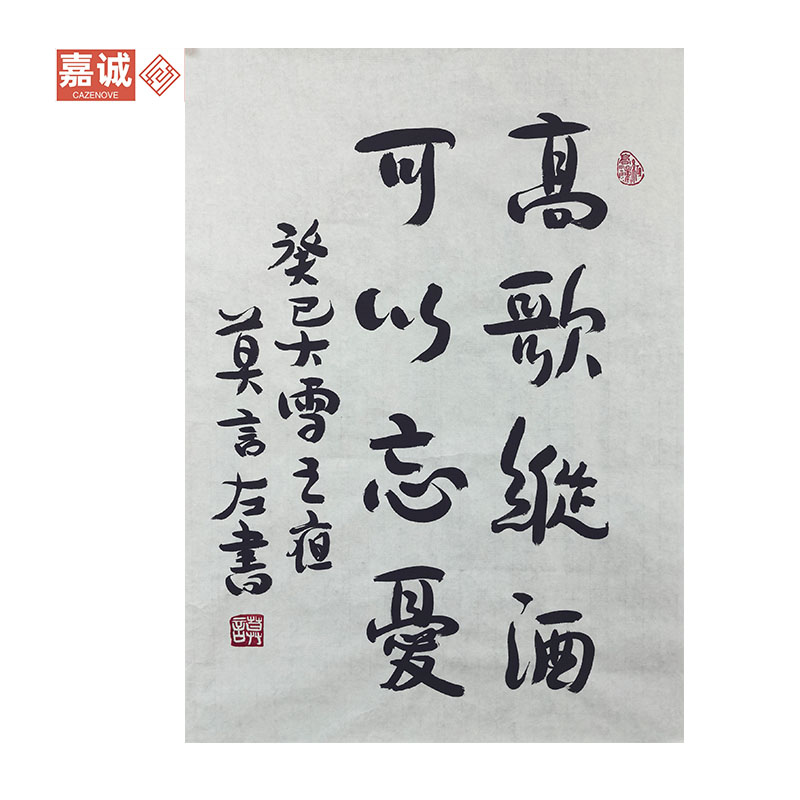 嘉诚
CAZENOVE
高歌縱酒
可以忘憂
癸巳大雪之夜
莫言左書